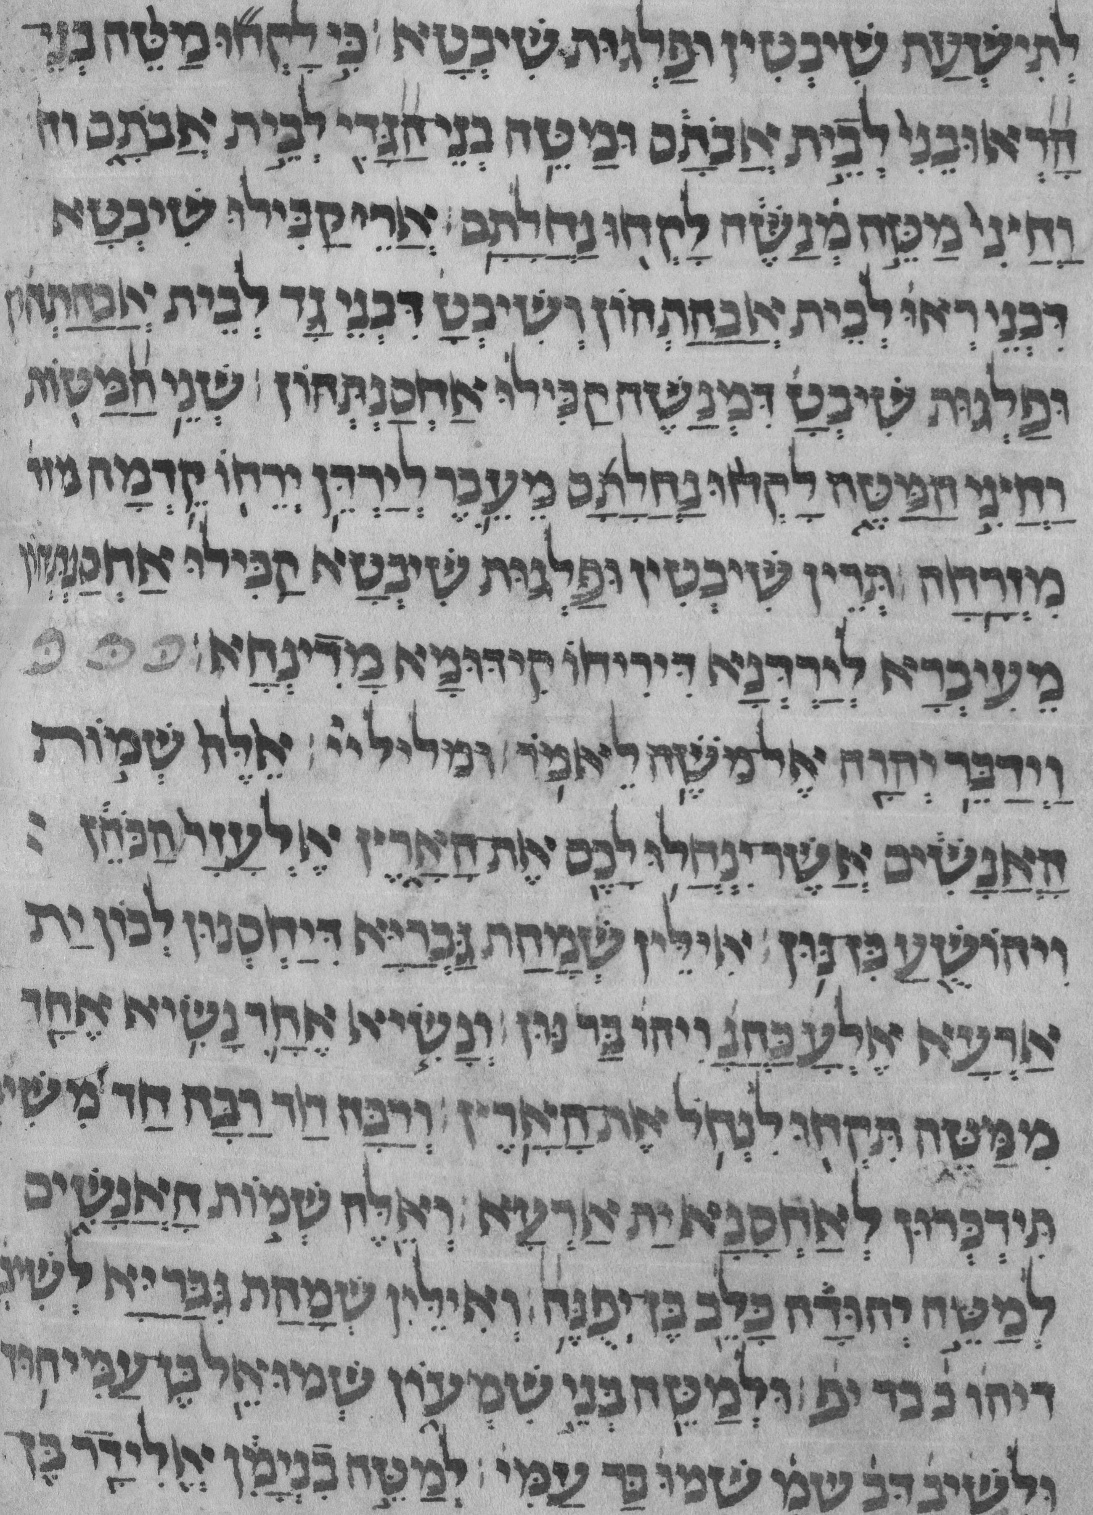 לְתִישְׁעַת שִׁיבְטִין וּפַלְגוּת שִׁיבְטָא ׃ כִּי לָקְחוּ מַטֵּה בְנֵי
הָרְאוּבֵנִי לְבֵית אֲבֹתָם וּמַטֵּה בְנֵי הַגָּדִי לְבֵית אֲבֹתָם וח
וַחֲצִי מַטֵּה מְנַשֶּׁה לָקְחוּ נַחֲלָתָם ׃ אֲרֵי קַבִּילוּ שִׁיבְטָא
דִּבְנֵי רְאוּ לְבֵית אֲבָהַתְהוֹן וְשִׁיבְטָ דִּבְנֵי גָד לְבֵית אֲבָהַתְהוֹן
וּפַלְגוּת שִׁיבְטָ דִּמְנַשֶּׁה קַבִּילוּ אַחְסַנְתְּהוֹן ׃ שְׁנֵי הַמַּטּוֹת
וַחֲצִי הַמַּטֶּה לָקְחוּ נַחֲלָתָם מֵעֵבֶר לְיַרְדֵּן יְרֵחוֹ קֵדְמָה מזר
מִזְרָחָה ׃ תְּרֵין שִׁיבְטִין וּפַלְגוּת שִׁיבְטָא קַבִּילוּ אַחְסַנְתְּהוֹן
מֵעִיבְרָא לְיַרְדְּנָא דִּירִיחוֹ קִידּוּמָא מָדִינְחָא ׃ פ פ פ
וַיְדַבֵּר יְהוָה אֶל מֹשֶׁה לֵּיאמֹר ׃ ומליל יי ׃ אֵלֶּה שְׁמוֹת
הָאֲנָשִׁים אֲשֶׁר יִנְחֲלוּ לָכֶם אֶת הָאָרֶץ אֶלְעָזָר הַכֹּהֵן ׃
וִיהוֹשֻׁעַ בִּן נוּן ׃ אִילֵּין שְׁמָהַת גֻּבְרַיָּא דְּיַחְסְנוּן לְכוֹן יַת
אַרְעָא אֶלְעָ כַּהֲנָ וִיהוֹ בַּר נוּן ׃ וְנָשִׂיא אֶחָד נָשִׂיא אֶחָד
מִמַּטֶּה תִּקְחוּ לִנְחֹל אֶת הָאָרֶץ ׃ וְרַבָּה חַד רַבָּה חַד מִשִּׁי
תִּידְבְּרוּן לְאַחְסָנָא יַת אַרְעָא ׃ וְאֵלֶּה שְׁמוֹת הָאֲנָשִׁים
לְמַטֵּה יְהוּדָה כָּלֵב בֶּן יְפֻנֶּה ׃ וְאִילֵּין שְׁמָהַת גֻּבְרַיָּא לְשִׁיבְ
דיהו כ בר יפ ׃ וּלְמַטֵּה בְּנֵי שִׁמְעוֹן שְׁמוּאֵל בֶּן עַמִּיהוּד
וּלְשִׁיבְ דּבְ שמ שמוּ בַּר עַמִּי ׃ לְמַטֵּה בִנְיָמִן אֱלִידָד בֶּן